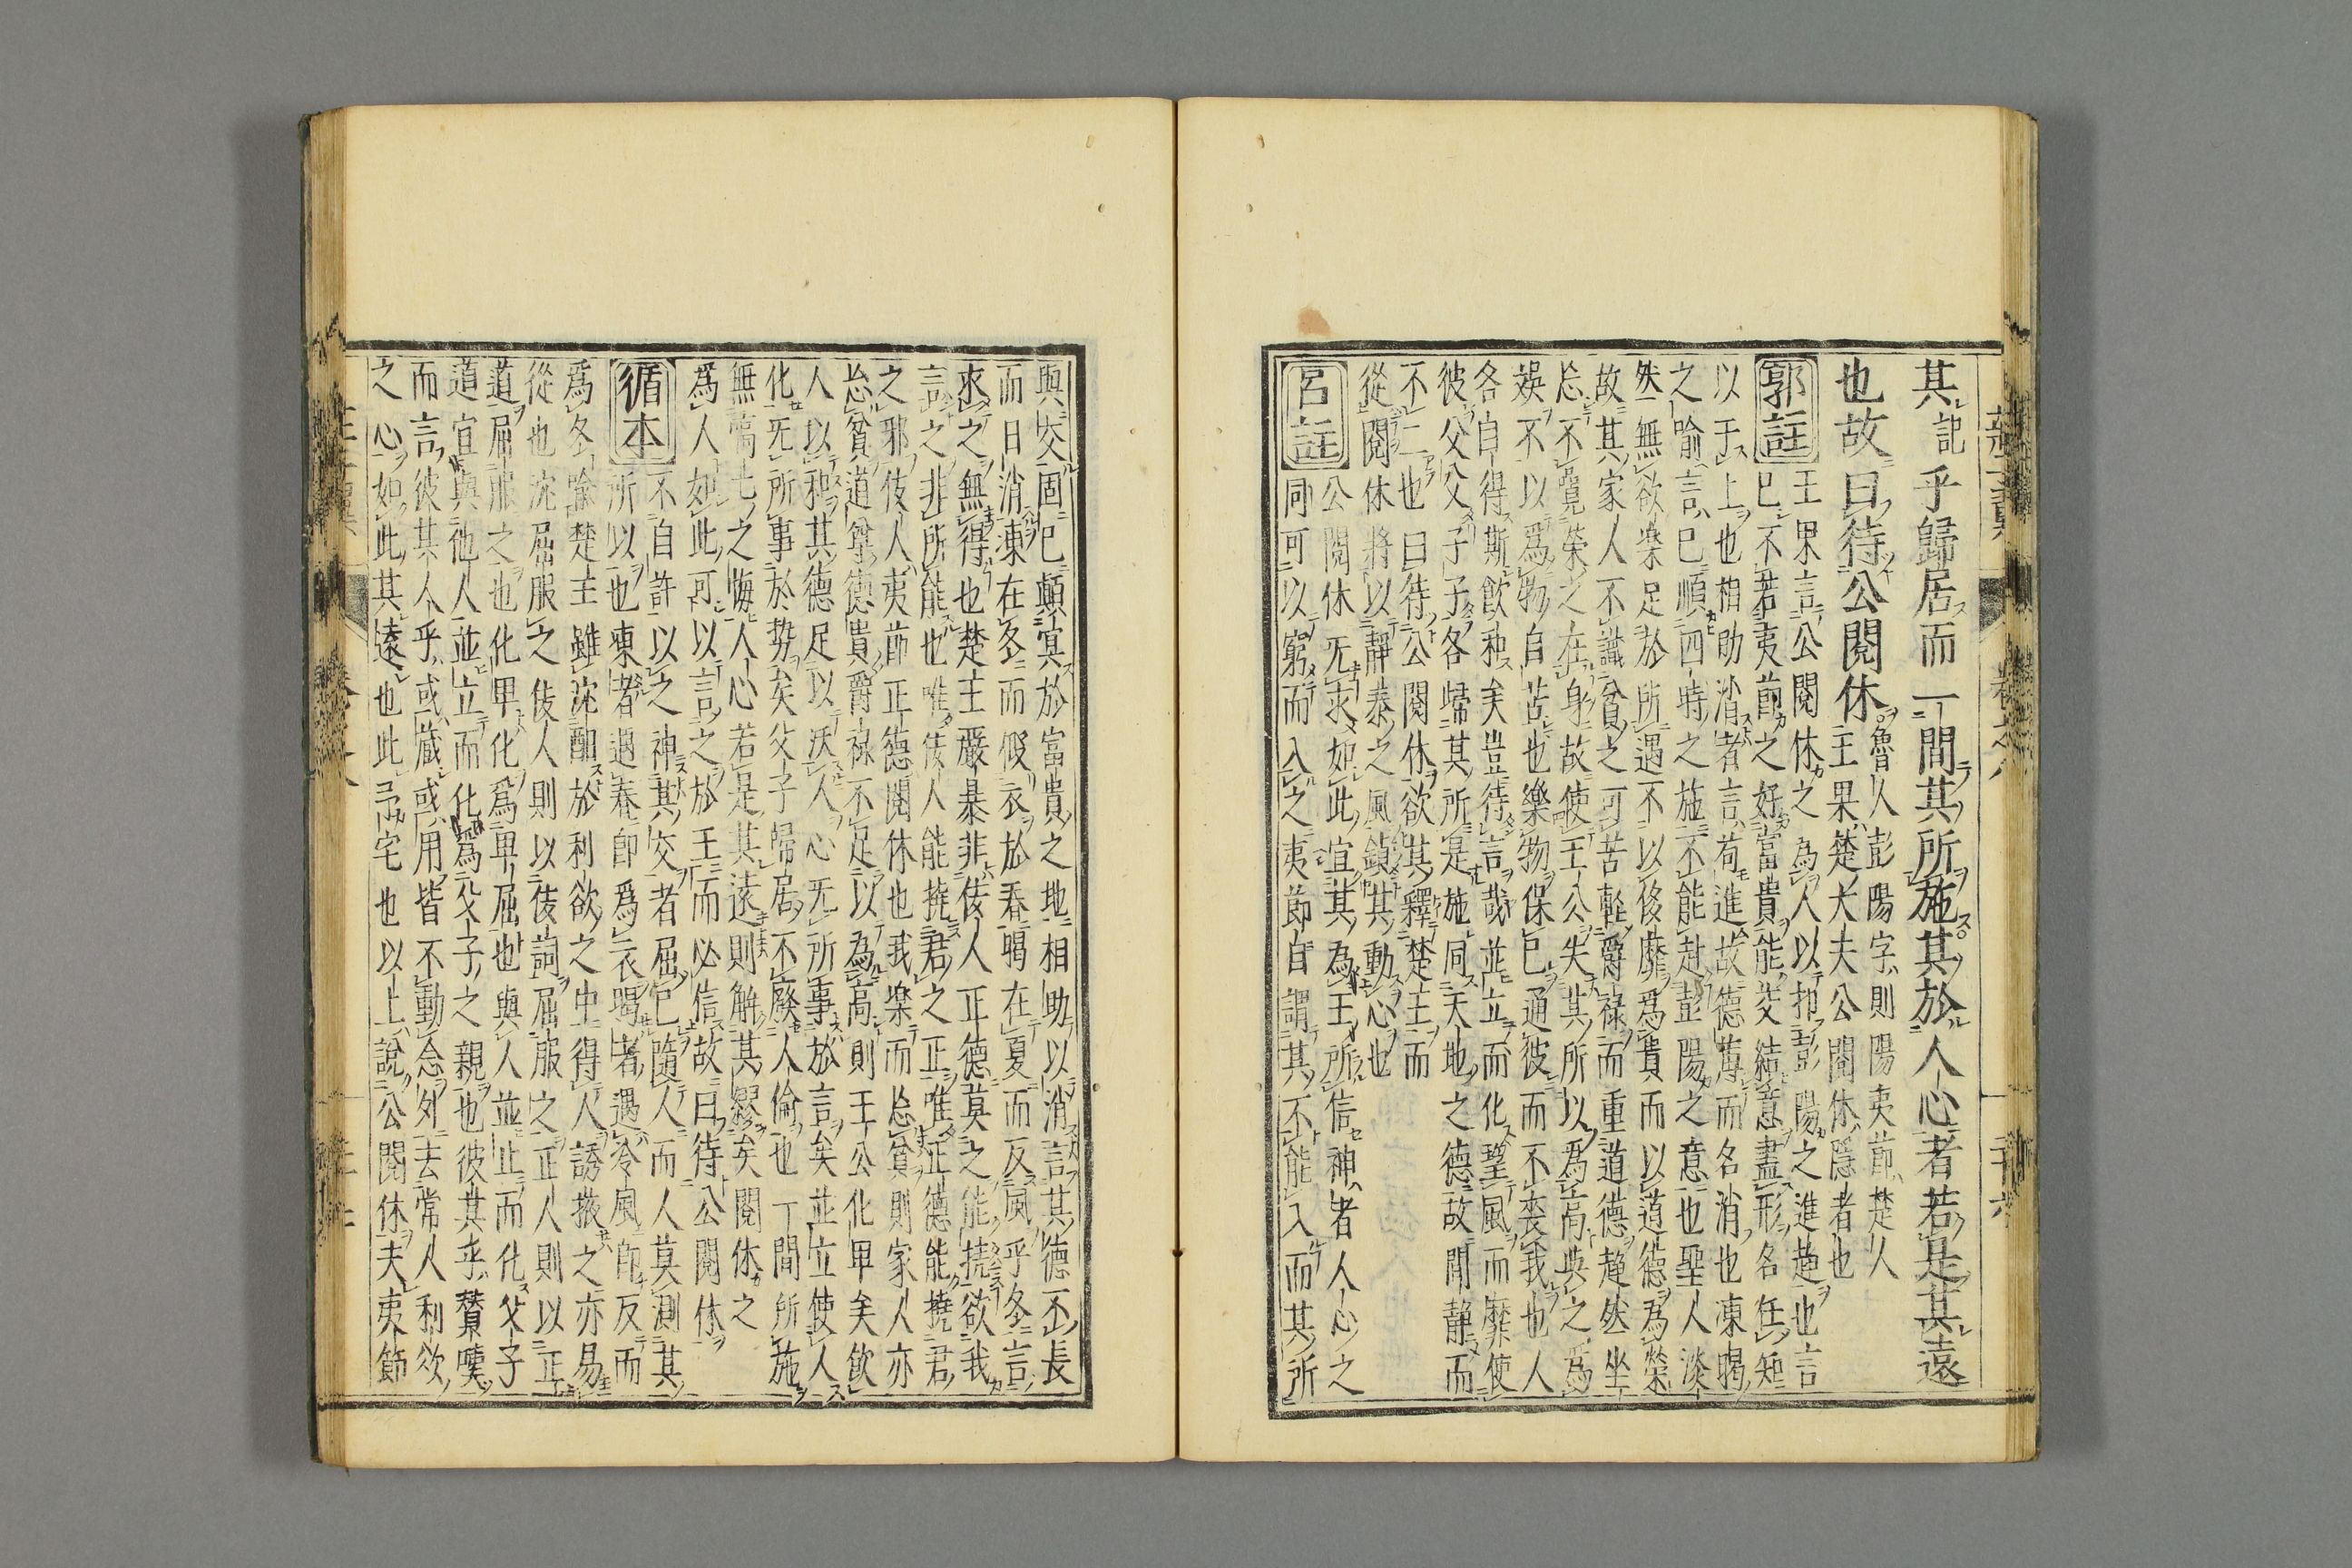 其記乎歸居而一間其所施其於人心者若是其遠
也故曰待公閱休
魯人彭陽字則陽夷節楚人
王果楚大夫公閱休隱者也
郭註
王果言公閱休之為人以抑彭陽之進趨也言
已不若夷節之好富貴能交結意盡形名任知
以干上也相助消者言苟進故德薄而名消也凍暍
之喻言已順四時之施不能赴彭陽之意也聖人淡
然無欲樂足於所遇不以侈靡為貴而以道德為榮
故其家人不識貧之可苦輕爵祿而重道德超然坐
忘不覺榮之在身故使王公失其所以為高與之為
娛不以爲物自苦也樂物保已通彼而不喪我也人
各自得斯飲和矣豈待言哉並立而化望風而靡使
彼父父子子各歸其所是施同天地之德故間靜而
不二也曰待公閱休欲其釋楚王而
從閱休將以靜泰之風鎮其動心也
呂註
公閱休无求如此宜其為王所信神者人心之
同可以窮而入之夷節自謂其不能入而其所
與交固已顛冥於富貴之地相助以消言其德不長
而日消凍在冬而假衣於春暍在夏而反風乎冬言
求之無得也楚王嚴暴非佞人正德莫之能撓欲我
言之非所能也唯佞人能撓君之正唯正德能撓君
之邪佞人夷節正德閱休也我樂而忘貧則家人亦
忘貧道尊德貴爵祿不足以為高則王公化卑矣飲
人以和其德足以沃人心无所事於言矣並立使人
化无所事於勢矣父子歸居不廢人倫也一間所施
無高七之悔人心若是其遠則解其繆矣閱休之
為人如此可以言之於王而必信故曰待公閱休
循本
不自許以之神其交者屈已隨人而人莫測其
所以也凍者遇春即爲衣暍者遇冷風即反而
爲冬喻楚王雖沈酣於利欲之中得人誘掖之亦易
從也沈屈服之佞人則以佞詞屈服之正人則以正
道屈服之也化卑化爲卑屈也與人並止而化父子
道宜與他人並立而化為父子之親也彼其乎贊嘆
而言彼其人乎或藏或用皆不動念外去常人利欲
之心如此其遠也此予宅也以上說公閱休夫夷節